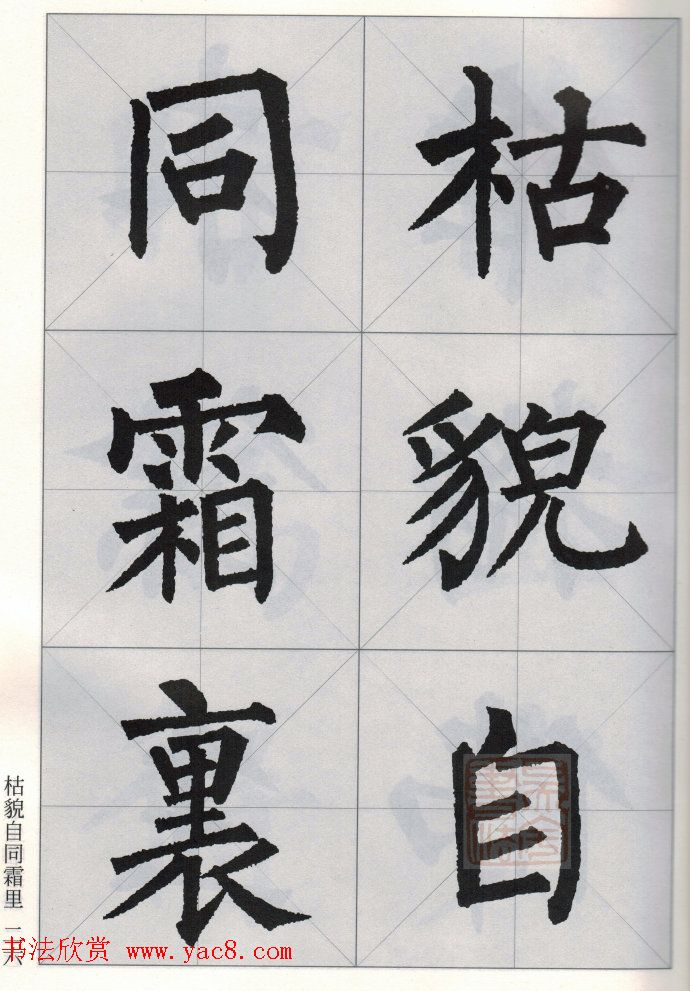 枯貌自
同霜裏
枯貌自同霜里
书法欣赏 www.yac8.com